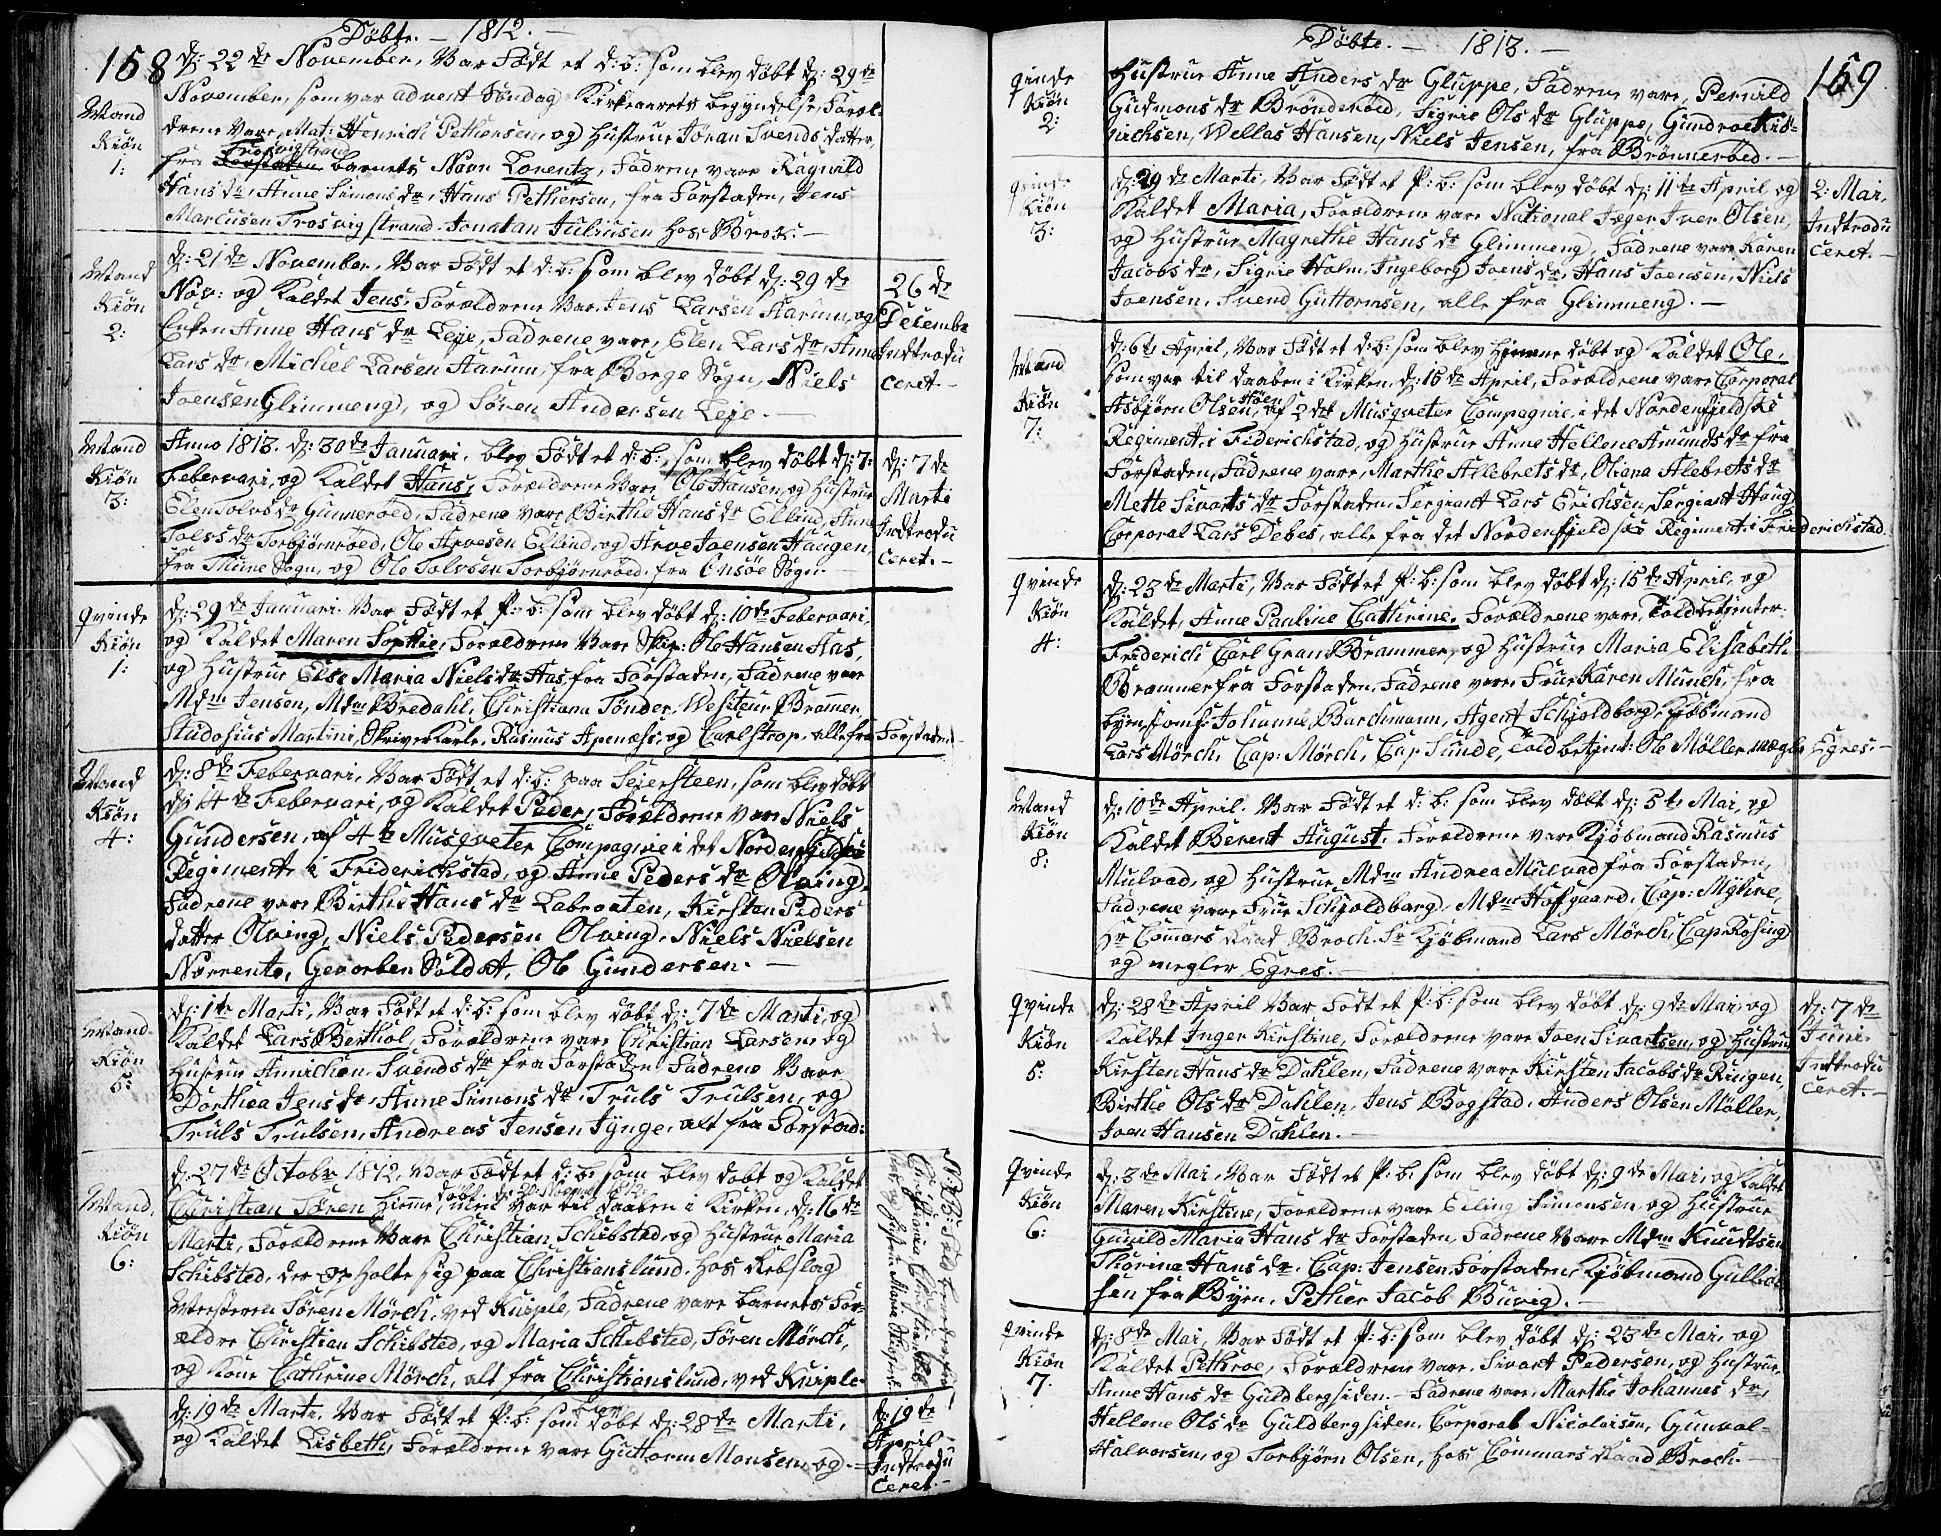 Döbte. – 1812. –
158
Mand
Kiön
1:
d: 22de November, Var Född et d: b: som blev döbt d: 29de
November, som var advent Söndag Kirkeaarets begyndelse, Foræl-
drene Vare, Mat: Henrich Pethersen, og Hustrue Johan Svends datter,
Trosvigstrand
fra Forstaden barnets Navn Lorentz, Fadrene vare Ragnild
Hans dr, Anne Simons dr, Hans Pethersen, fra Forstaden, Jens
Marcusen Trosvigstrand, Jonatan Juliusen hos Brok. –
Mand
Kiön
2:
d: 21de November, Var Född et d: b: som blev döbt d: 29de
Nov: og Kaldet Jens, Forældrene Var, Jens Larsen Aarum, og
Enken Anne Hans dr Leje, Fadrene vare, Elen Lars dr, Anne
Lars dr, Michel Larsen Aarum, fra Borge Sogn, Niels
Joensen Glimmeng, og Sören Andersen Leje. –
26de
Decembr
Indtrodu
ceret. –
Mand
Kiön
3:
Anno 1813. d: 30de Januari, blev Född et d: b:, som blev döbt d: 7:
Februari, og Kaldet Hans, Forældrene Vare Ole Hansen, og Hustrue
Elen Tolvs dr Gunneröed, Fadrene vare Birthe Hans dr Ellind, Anne
Tolvs dr Torbjörnröed, Ole Arvesen Ellind, og Arve Joensen Haugen,
fra Thune Sogn, og Ole Tolvsen Torbjörnröed, fra Onsöe Sogn. –
d: 7de
Marti
Indtrodu
ceret. –
Qvinde
Kiön
1:
d: 29de Januari. Var Född et P: b: som blev döbt d: 10de Februari,
og Kaldet Maren Sophie, Forældrene Vare Skip: Ole Hansen Aas,
og Hustrue Else Maria Niels dr Aas, fra Forstaden, Fadrene vare
Mdm Jensen, Mdm Bredahl, Christiana Tönder, Vesiteur Brammer,
Studosius Martini, Skriver Karte, Rasmus Apenæss, og Carlstrop, alle fra Forstaden
Mand
Kiön
4:
d: 8de Februari, Var Född et d: b: paa Sejersteen, som blev döbt
d: 14de Februari, og Kaldet Peder, Forældrene Vare Niels
Gundersen, af 4de Musqveter Compagnie i det Nordenfieldske
Regiment i Friderichstad, og Anne Peders dr Olving,
Fadrene vare Birthe Hans dr Labraaten, Kirsten Peders
datter Olving, Niels Pedersen Olving, Niels Nielsen
Norrente, Gevorben Soldat, Ole Gundersen. –
Mand
Kiön
5:
d: 1te Marti, Var Född et d: b: som blev döbt d: 7de Marti, og
Kaldet Lars Berthol, Forældrene vare Christian Larsen, og
Hustrue Anichen Svends dr fra Forstaden Fadrene Vare
Dorthea Jens dr, Anne Simons dr, Truls Trulsen, og
Truls Trulsen, Andreas Jensen Jynge, alt fra Forstad:
Mand
Kiön
6:
d: 27de Octobr 1812, Var Född et d: b: som blev döbt og Kaldet
Christian Sören, hiemme, men var til daaben i Kirken, d: 16de
Marti, Forældrene Vare Christian Schibsted, og Hustrue Maria
Schibsted, der op holte sig paa Christianslund, hos Rebslag
Mesteren Sören Mörch, ved Kniple, Fadrene vare barnets For-
ældre Christian Schibsted, og Maria Schibsted, Sören Mörch,
og Kone Cathrine Mörch, alt fra Christianslund, ved Kniple.
d: 19de Marti. Var Född et P: b: som blev döbt d: 28de Marti,
og Kaldet Lisbeth, Forældrene vare Guttorm Monsen, og. –
d: 19de
April
Indtrodu
ceret. –
Döbte. – 1813. –
159
Qvinde
Kiön
2:
Hustrue Anne Anders dr Gluppe, Fadrene vare, Pernild
Gudmons dr Brönderöed, Sigrie Ols dr Gluppe, Gundroe Kid-
richsen, Vellas Hansen, Niels Jensen, fra Brönneröed. –
Qvinde
Kiön
3:
d: 29de Marti, Var Född et P: b: som blev döbt d: 11te April og
Kaldet Maria, Forældrene vare National Jæger Iver Olsen,
og Hustrue Magrethe Hans dr Glimmeng, Fadrene vare Karen
Jacobs dr, Sigrie Holm, Ingeborg Joens dr, Hans Joensen, Niels
Joensen, Svend Guttormsen, alle fra Glimmeng. –
2: Mai,
Indtrodu
ceret. –
Mand
Kiön
7:
d: 6te April, Var Född et d: b: som blev hjemme döbt og Kaldet Ole,
som var til daaben i Kirken, d: 15de April, Forældrene vare Corporal
Asbjörn Olsen, af 2det Musqveter Compagnie, i det Nordenfjeldske
Regiment, i Friderichstad, og Hustrue Anne Hellene Amunds dr fra
Forstaden, Fadrene vare, Marthe Allebrets dr, Oliana Alebrets dr
Mette Sivarts dr Forstaden, Sergiant Lars Erichsen, Sergiant Haug,
Corporal Lars Debes, alle fra det Nordenfjeldske Regiment i Friderichstad.
Qvinde
Kiön
4:
d: 23de Marti, Var Född et P: b: som blev döbt d: 15de April, og
Kaldet, Anne Pauline Cathrine. Forældrene vare, Toldbetienter
Friderich Carl Gran Brammer, og Hustrue Maria Elisabeth
Brammer fra Forstaden, Fadrene vare Frue Karen Munch, fra
byen, Jomf: Johanna Burchmann, Agent Schjoldborg, Kjöbmand
Lars Mörch, Cap: Mörch, Cap: Sunde, Toldbetjent: Ole Möller, mægler Egres. –
Mand
Kiön
8:
d: 10de April. Var Född et d: b: som blev döbt d: 5te Mai, og
Kaldet Berent August, Forældrene vare Kjöbmand Rasmus
Mulvad, og Hustrue Mdm Andrea Mulvad fra Forstaden,
Fadrene vare Frue Schjoldborg, Mdm Hofgaard, Cap: Myhre,
Hr Commars Raad Broch, Sr Kjöbmand Lars Mörch, Cap: Rosing
og megler Egres. –
Qvinde
Kiön
5:
d: 28de April Var Född et P: b: som blev döbt d: 9de Mai, og
Kaldet Inger Kirstine, Forældrene vare Joen Sivartsen, og Hustrue
Kirsten Hans dr Dahlen, Fadrene vare Kirsten Jacobs dr Ringen,
Birthe Ols dr Dahlen, Jens Bogstad, Anders Olsen Möller,
Joen Hansen Dahlen. –
d: 7de
Juni
Indtrodu
ceret. –
Qvinde
Kiön
6:
d: 3de Mai, Var Född et P: b: som blev döbt d: 9de Mai, og Kaldet
Maren Kirstine, Forældrene vare Elling Simonsen, og Hustrue
Gunild Maria Hans dr Forstaden, Fadrene Vare Mdm Knudtsen
Thorine Hans dr, Cap: Jensen Forstaden, Kjöbmand Gullich
sen fra Byen, Pether Jacob Buvig. –
Qvinde
Kiön
7.
d: 8de Mai, Var Född et P: b: som blev döbt d: 23de Mai, og
Kaldet Pethroe, Forældrene vare, Sivart Pedersen, og Hustrue,
Anne Hans dr Guldbergsiden. – Fadrene vare, Marthe Johannes dr,
Hellene Ols dr Guldbergsiden, Corporal Nicolaisen, Gunval-
Halvorsen, og Torbjörn Olsen, hos Commars Raad Broch. –